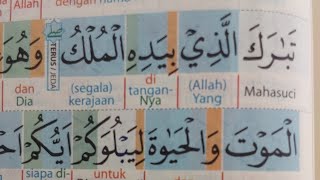 Allah dengan nama
تَبٰرَكَ الَّذِيْ بِيَدِهِ الْمُلْكُ وَهُوَ
TERUS/JEDA
dan (segala) di (Allah)
Dia kerajaan tangan-Nya Yang Mahasuci
الْمَوْتَ وَالْحَيٰوةَ لِيَبْلُوَكُمْ اَيُّكُمْ
siapa di- untuk